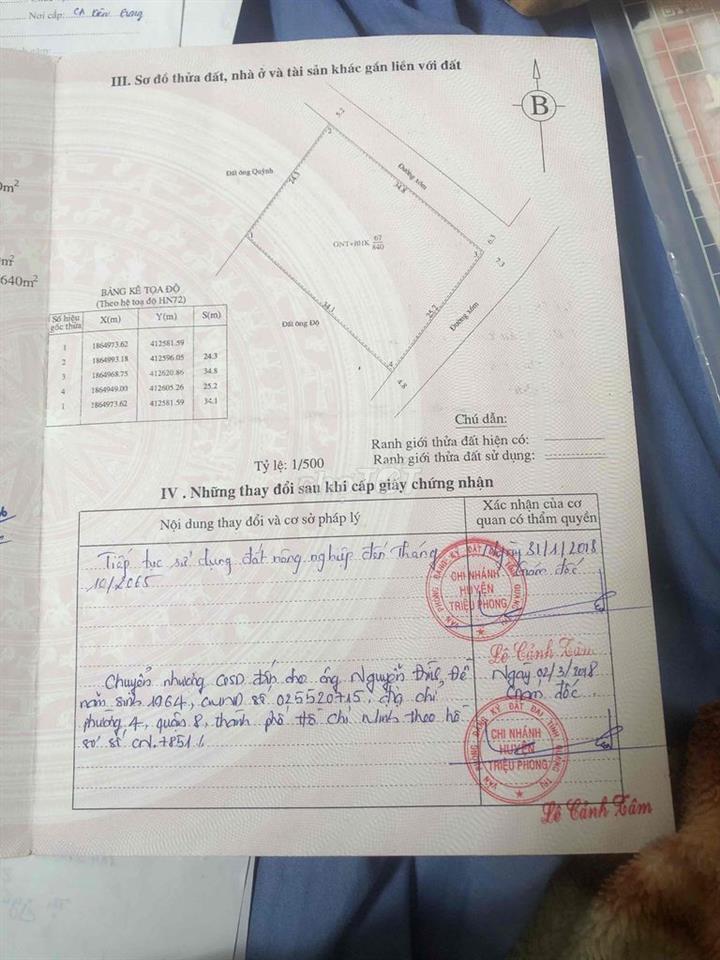 Nơi cấp: CA Kiên Giang
III. Sơ đồ thửa đất, nhà ở và tài sản khác gắn liền với đất
B
5.2
2
Đất ông Quỳnh
24.3
Đường xóm
34.8
1
67
840
6.3
3
7.3
34.1
Đất ông Độ
25.2
Đường xóm
4
4.8
m²
m²
640m²
BẢNG KÊ TỌA ĐỘ
(Theo hệ toạ độ HN72)
Số hiệu góc thửa X(m) Y(m) S(m)
1 1864973.62 412581.59
2 1864993.18 412596.05 24.3
3 1864968.75 412620.86 34.8
4 1864949.00 412605.26 25.2
1 1864973.62 412581.59 34.1
Chú dẫn:
Ranh giới thửa đất hiện có:
Ranh giới thửa đất sử dụng:
Tỷ lệ: 1/500
IV . Những thay đổi sau khi cấp giấy chứng nhận
Nội dung thay đổi và cơ sở pháp lý
Xác nhận của cơ quan có thẩm quyền
Tiếp tục sử dụng đất nông nghiệp đến Tháng
10/2065
Ngày 31/1/2018
Giám đốc
VĂN PHÒNG ĐĂNG KÝ ĐẤT ĐAI TỈNH QUẢNG TRỊ
CHI NHÁNH
HUYỆN
TRIỆU PHONG
Lê Cảnh Tâm
Chuyển nhượng QSD đất cho ông Nguyễn Đức Đề
năm sinh 1964, CMND số 025520715, địa chỉ
phường 4, quận 8, thành phố Hồ Chí Minh theo hồ
sơ số CN.
Ngày 02/3/2018
Giám đốc
VĂN PHÒNG ĐĂNG KÝ ĐẤT ĐAI TỈNH QUẢNG TRỊ
CHI NHÁNH
HUYỆN
TRIỆU PHONG
Lê Cảnh Tâm